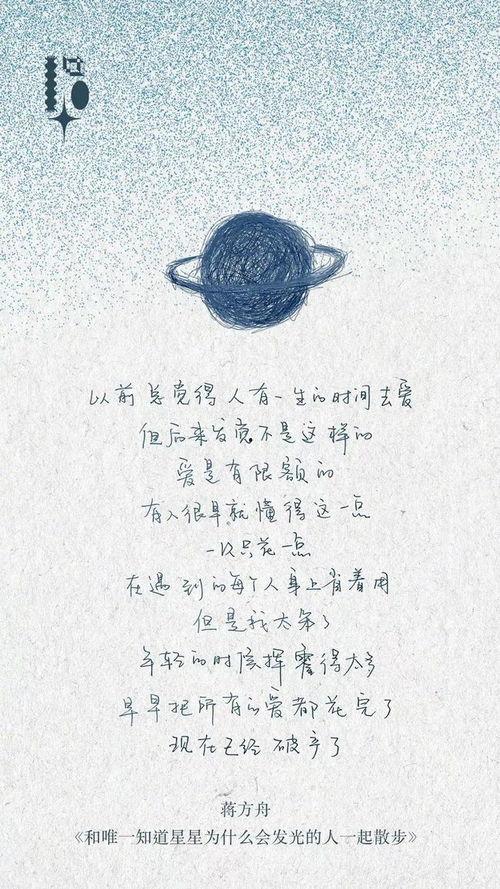 以前总觉得人有一生的时间去爱
但后来发觉不是这样的
爱是有限额的
有人很早就懂得这一点
一次只花一点
在遇到的每个人身上省着用
但是我太笨了
年轻的时候挥霍得太多
早早把所有的爱都花完了
现在已经破产了
蒋方舟
《和唯一知道星星为什么会发光的人一起散步》